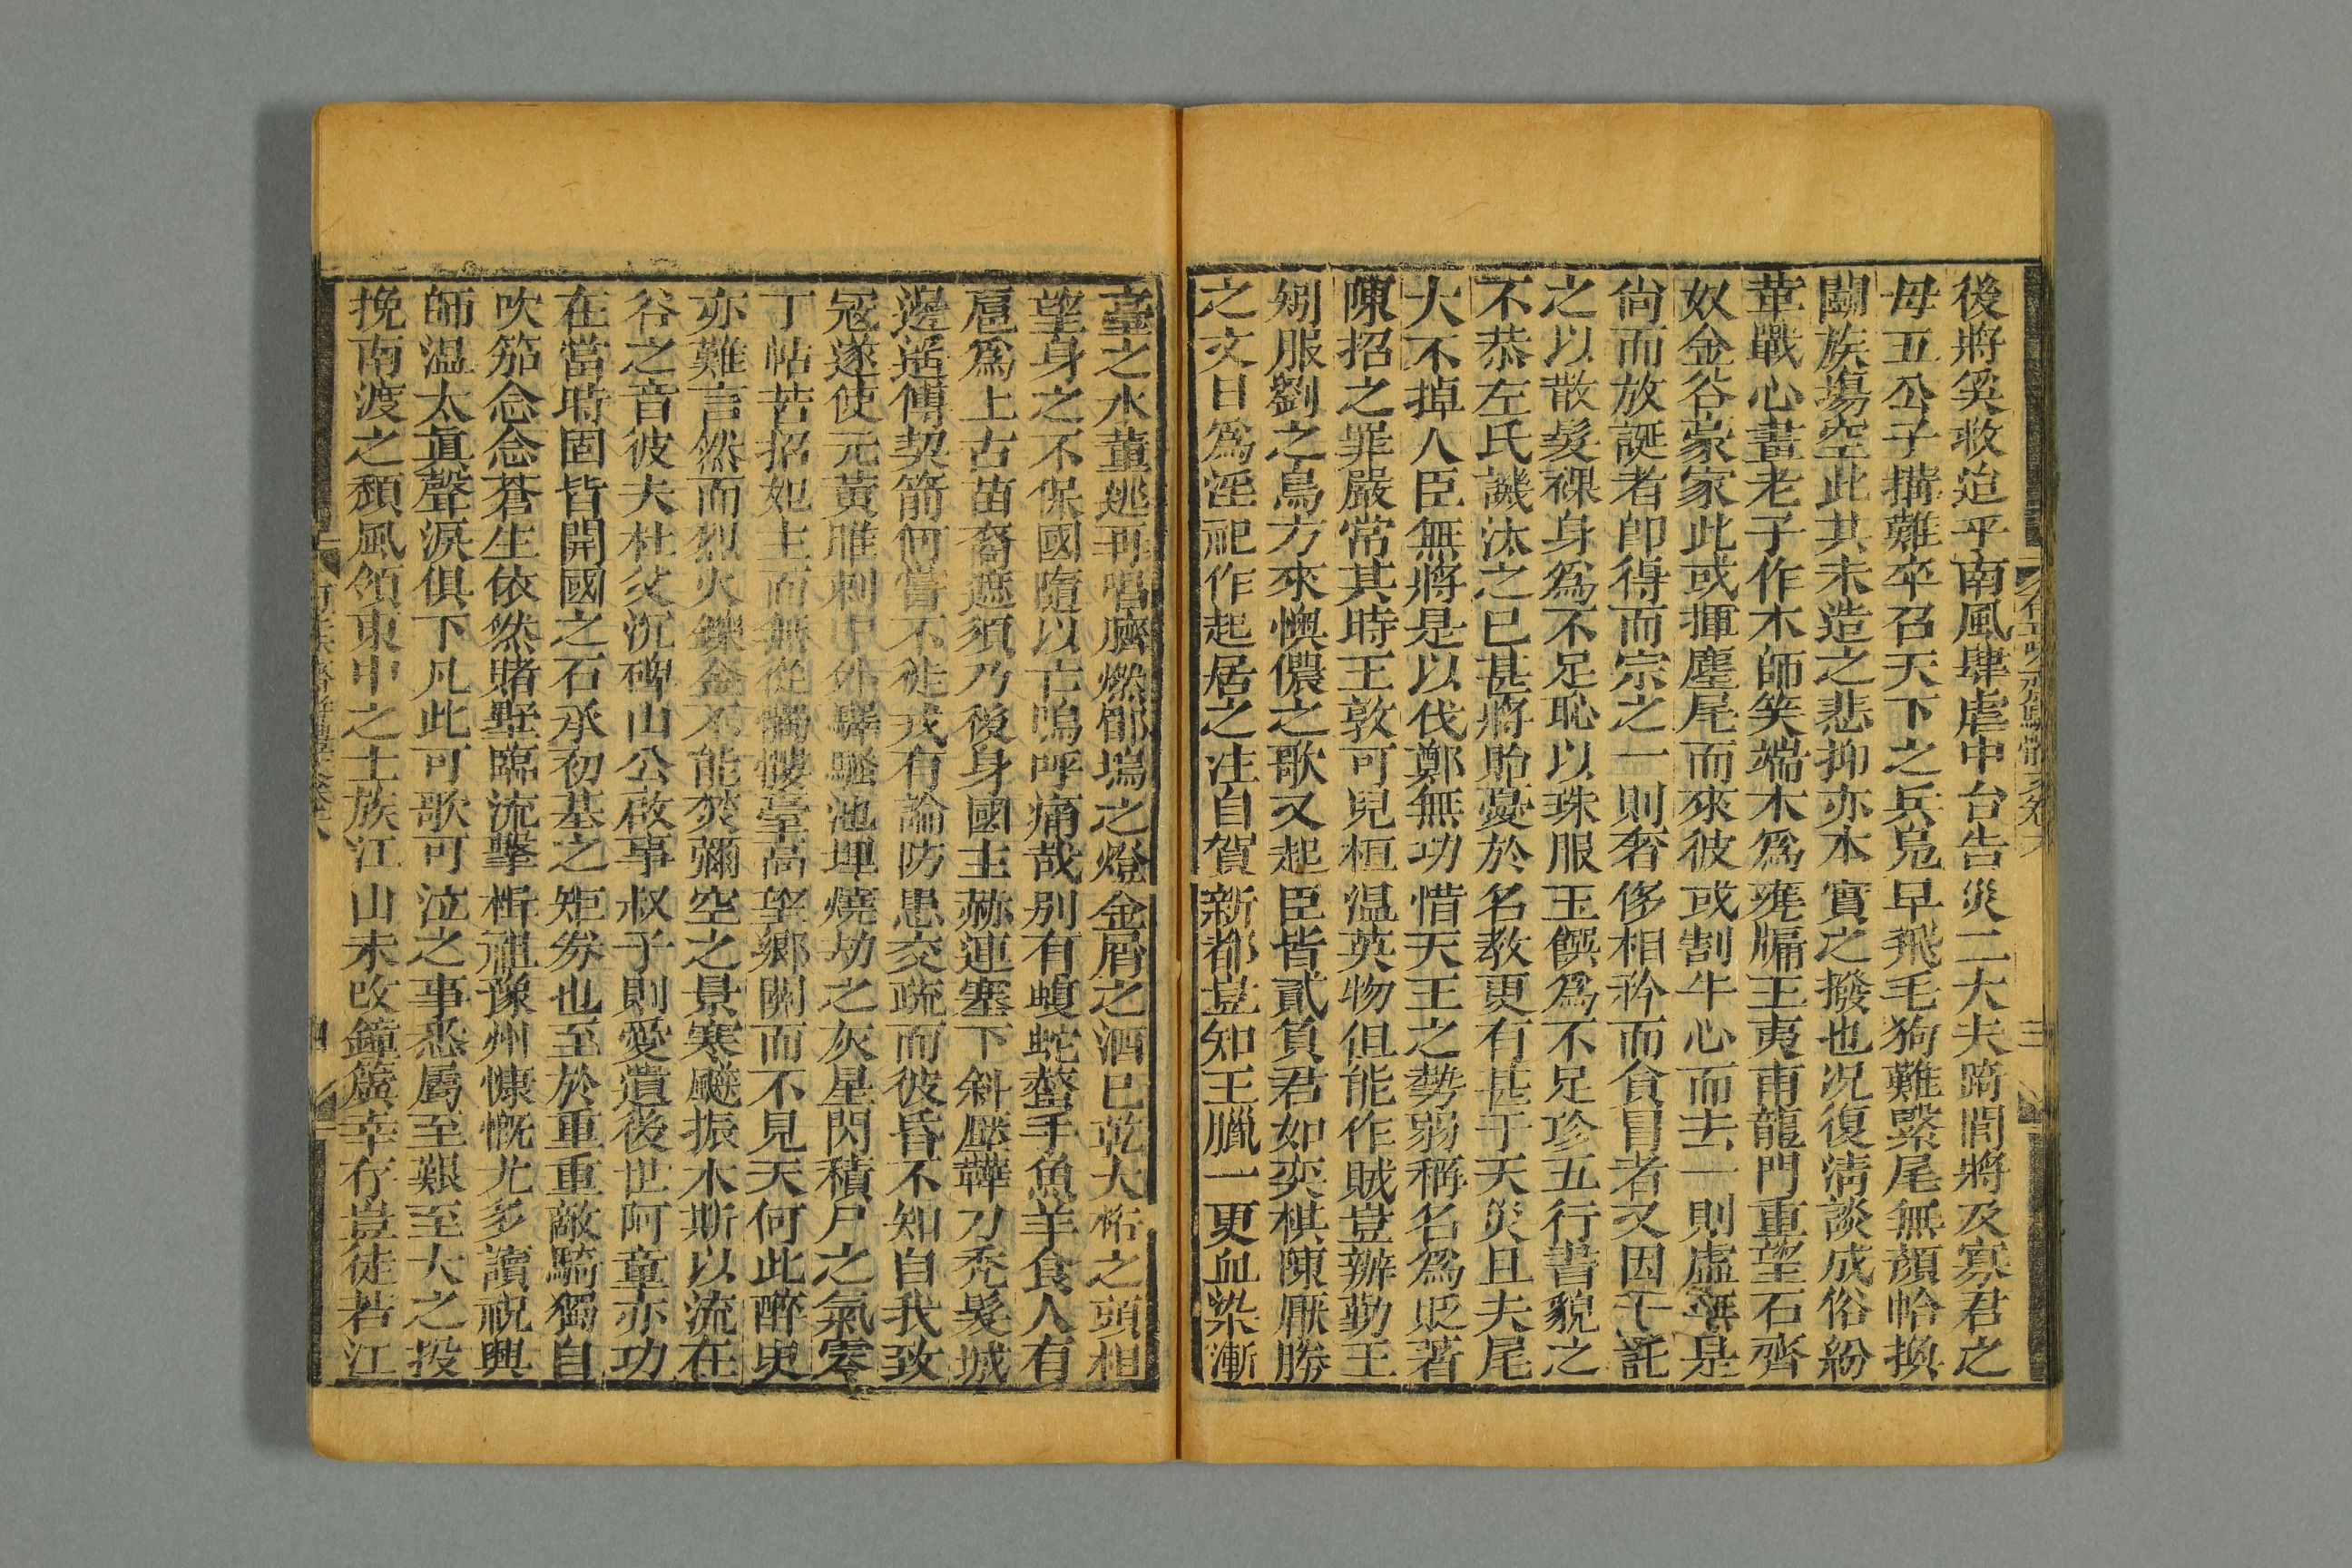 後將奚救迨平南風肆虐中台告災二大夫隔閡將及寡君之
母五公子搆難卒召天下之兵凫早飛毛狗難緊尾無顏帢換
鬭族塲空此其未造之悲抑亦本實之撥也况復淸談成俗紛
華戰心畫老子作木師笑端木爲㢕脼王夷甫龍門重望石齊
奴金谷豪家此或揮塵尾而來彼或割牛心而去一則虛無是
尙而放誕者卽得而宗之一則奢侈相矜而食冒者又因干託
之以散髮裸身爲不足恥以珠服玉饌爲不足珍五行書貌之
不恭左氏譏汰之已甚將貽憂於名教更有甚于天災且夫尾
大不掉人臣無將是以伐鄭無功惜天王之勢弱稱名爲貶著
陳招之罪嚴常其時王敦可兒桓温英物但能作賊豈辦勤王
矧服劉之鳥方來懊儂之歌又起臣皆貳負君如奕棋陳厭勝
之文日爲淫祀作起居之注自賀新都豈知王臘一更血染漸
臺之水董逃再唱臍燃郿塢之燈金屑之酒已乾大桁之頭相
望身之不保國隨以亡嗚呼痛哉別有蝮蛇螫手魚羊食人有
扈爲上古苗裔遮須乃後身國主赫連塞下斜壓韡刀禿髮城
邊遥傳契箭何嘗不徙戎有論防患交疏而彼昏不知自我致
寇遂使元黃雎刺中外驛騷池埋燒劫之灰星閃積尸之氣零
丁帖苦招如主而無從髑髏臺高望鄉關而不見天何此醉史
亦難言然而烈火鑠金不能焚彌空之景寒飈振木斯以流在
谷之音彼夫杜父沉碑山公啟事叔子則愛遺後世阿童亦功
在當時固皆開國之石承初基之矩券也至於重重敵騎獨自
吹笳念念蒼生依然賭墅臨流擊楫祖豫州慷慨尤多讀祝興
師温太眞聲淚俱下凡此可歌可泣之事悉屬至艱至大之投
挽南渡之頽風領東中之士族江山未改鐘簴幸存豈徒若江